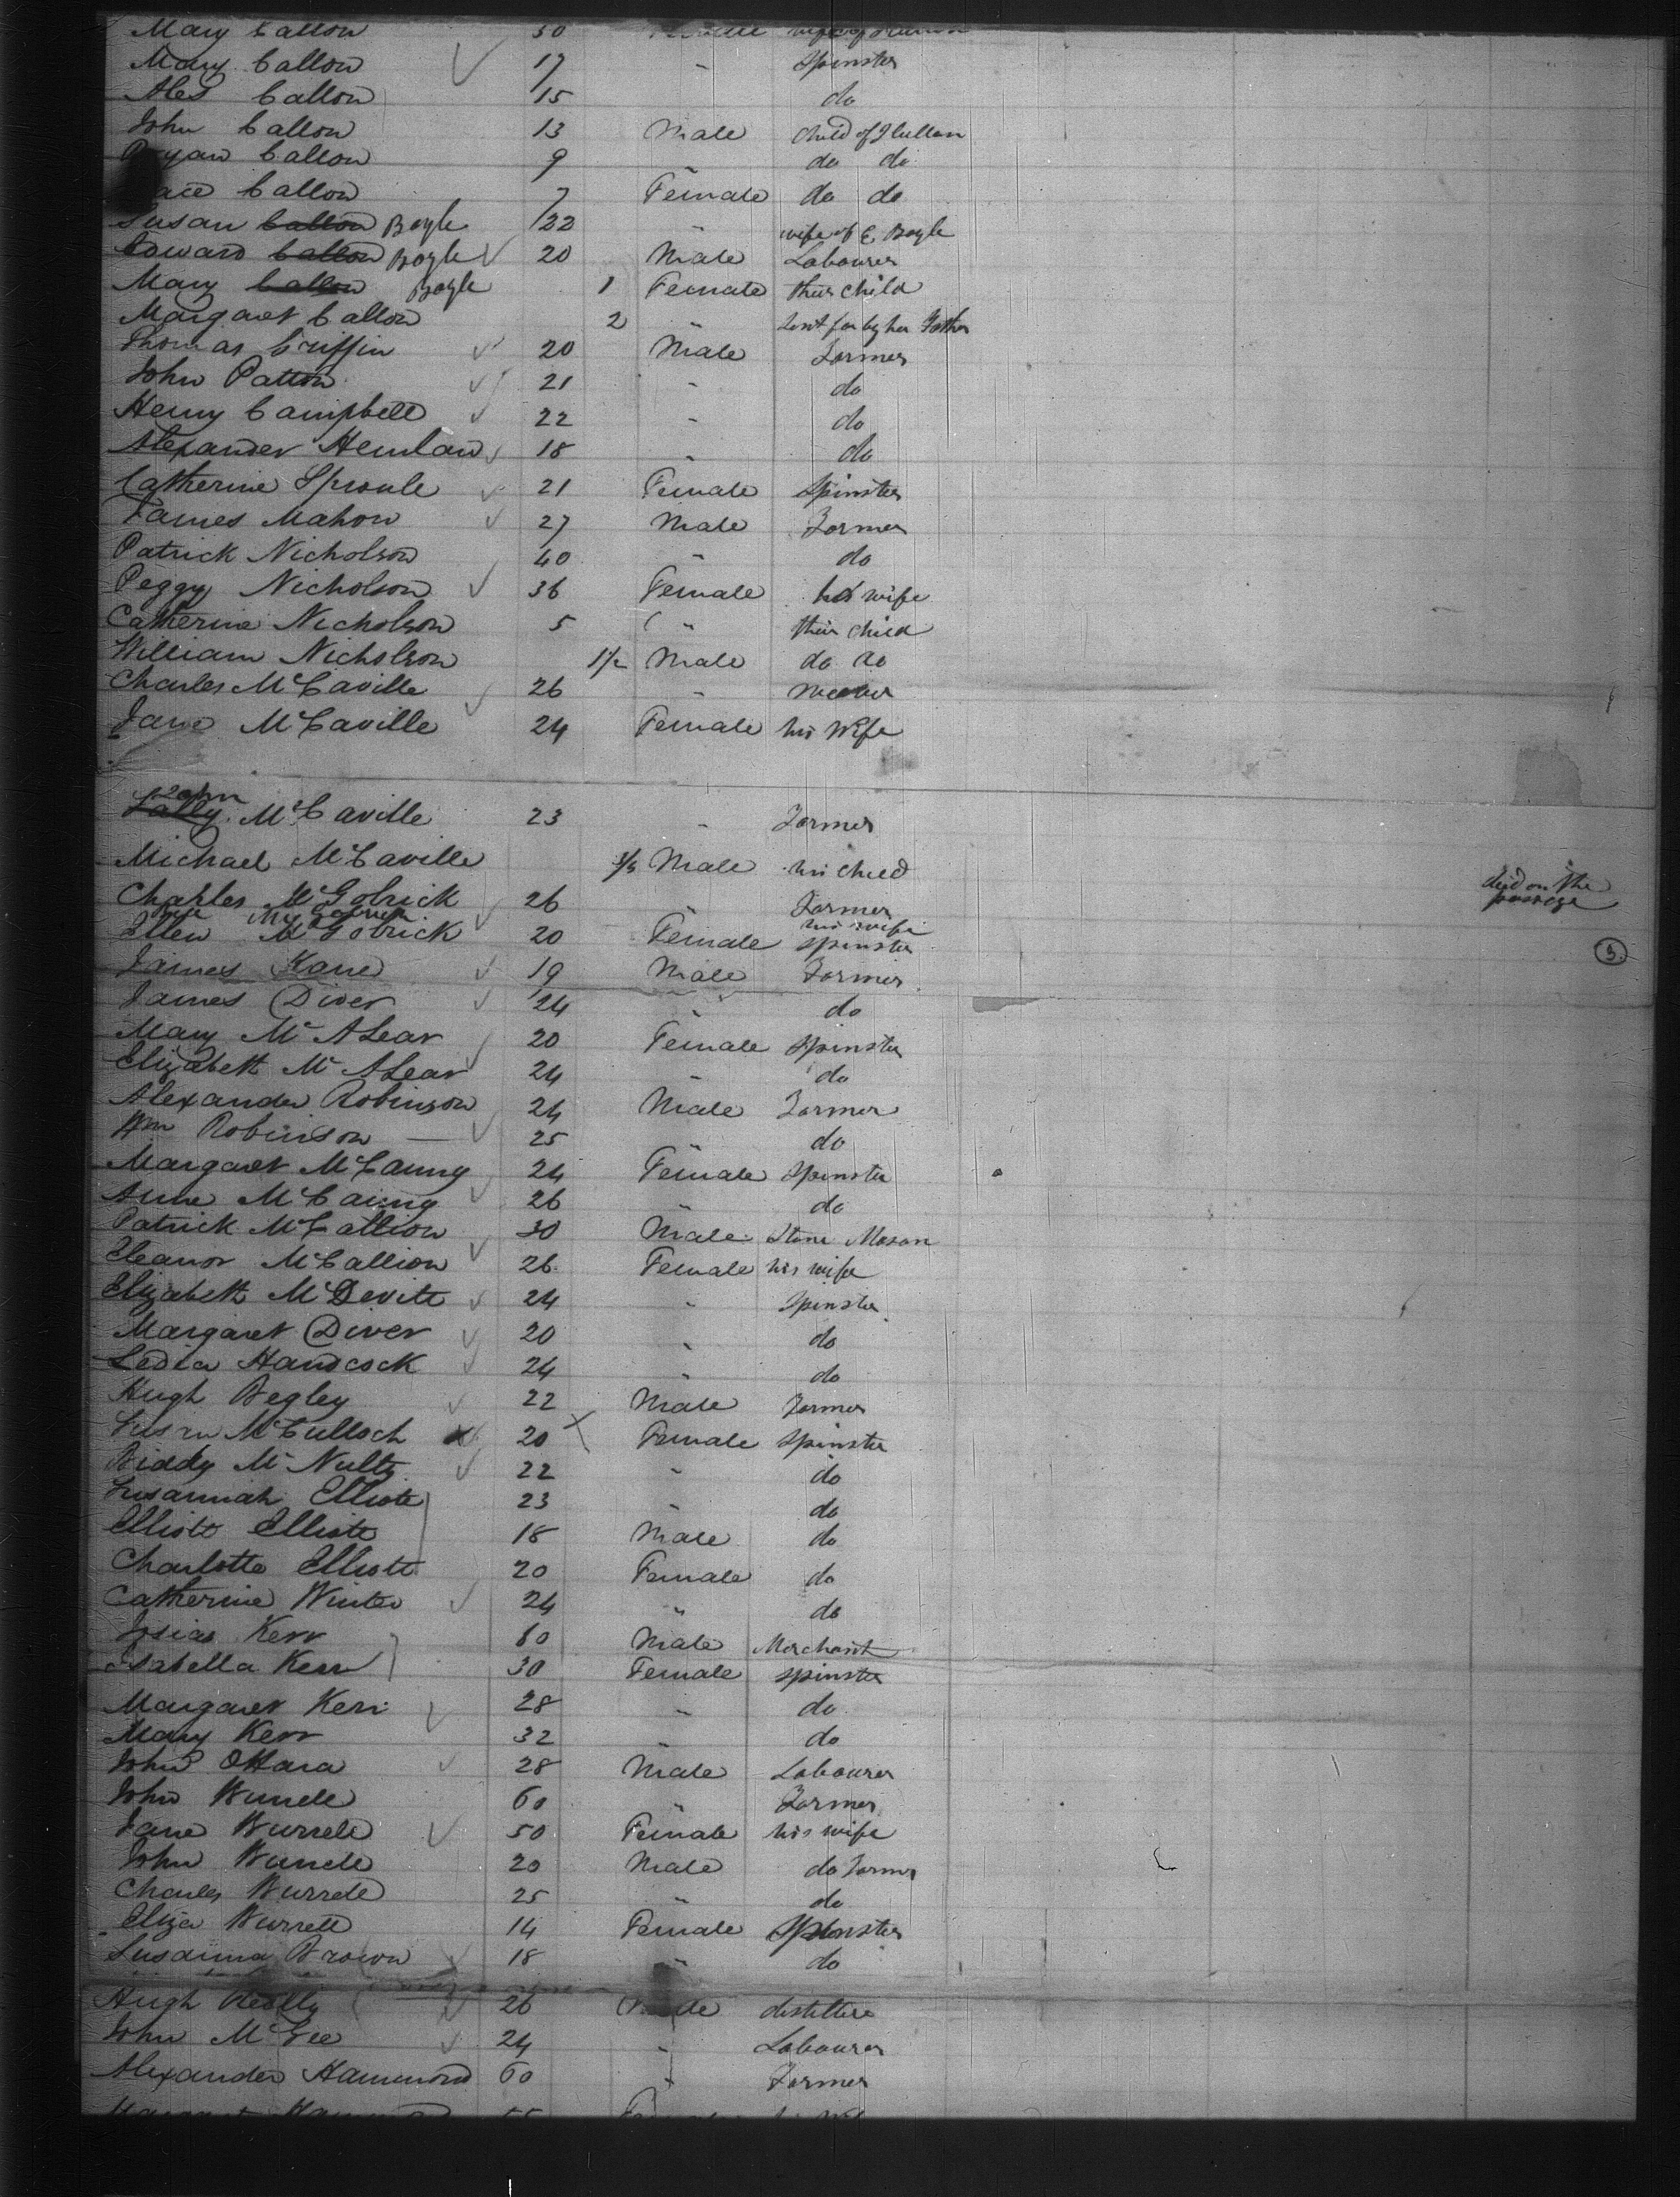 Mary Callon 50 wife of
Mary Callon 17 " Spinster
Ales Callon 15 do
John Callon 13 Male Child of J Cullon
Callon 9 " do do
Callon 7 Female do do
Susan Callon Boyle 22 " wife of E Boyle
Edward Callon Boyle 20 Male Labourer
Mary Callon Boyle 1 Female their child
Margaret Callon 2 " Sent for by her Father
Thomas Griffin 20 Male Farmer
John Patton 21 " do
Henry Campbell 22 " do
Alexander 18 " do
Catherine Sproule 21 Female Spinster
James Mahon 27 Male Farmer
Patrick Nicholson 40 " do
Peggy Nicholson 36 Female his wife
Catherine Nicholson 5 " their child
William Nicholson 1½ Male do do
Charles McCaville 26 "
Jane McCaville 24 Female his Wife
McCaville 23 " Farmer
Michael McCaville Male his child died on the passage
Charles McGolrick 26 Farmer
Ellen McGolrick 20 Female his wife Spinster
3.
James Kane 19 Male Farmer
James Diver 24 " do
Mary McALear 20 Female Spinster
Elizabeth McALear 24 " do
Alexander Robinson 24 Male Farmer
Wm Robinson 25 " do
Margaret McCauny 24 Female Spinster
Anne McCauny 26 " do
Patrick McCallion 30 Male Stone Mason
Eleanor McCallion 26 Female his wife
Elizabeth McDevitt 24 " Spinster
Margaret Diver 20 " do
Ledia Handcock 24 " do
Hugh Begley 22 Male Farmer
Susan McCulloch 20 Female Spinster
Biddy McNulty 22 " do
Susannah Elliott 23 " do
Elliott Elliott 18 Male do
Charlotte Elliott 20 Female do
Catherine Winter 24 " do
Josias Kerr 60 Male Merchant
Isabella Kerr 30 Female Spinster
Margaret Kerr 28 " do
Mary Kerr 32 " do
John OHara 28 Male Labourer
John Burrell 60 " Farmer
Jane Burrell 50 Female his wife
John Burrell 20 Male do Farmer
Charles Burrell 25 " do
Eliza Burrell 14 Female Spinster
Susanna Brown 18 " do
Hugh 26 Male distiller
John McGee 24 " Labourer
Alexander Hammond 60 " Farmer